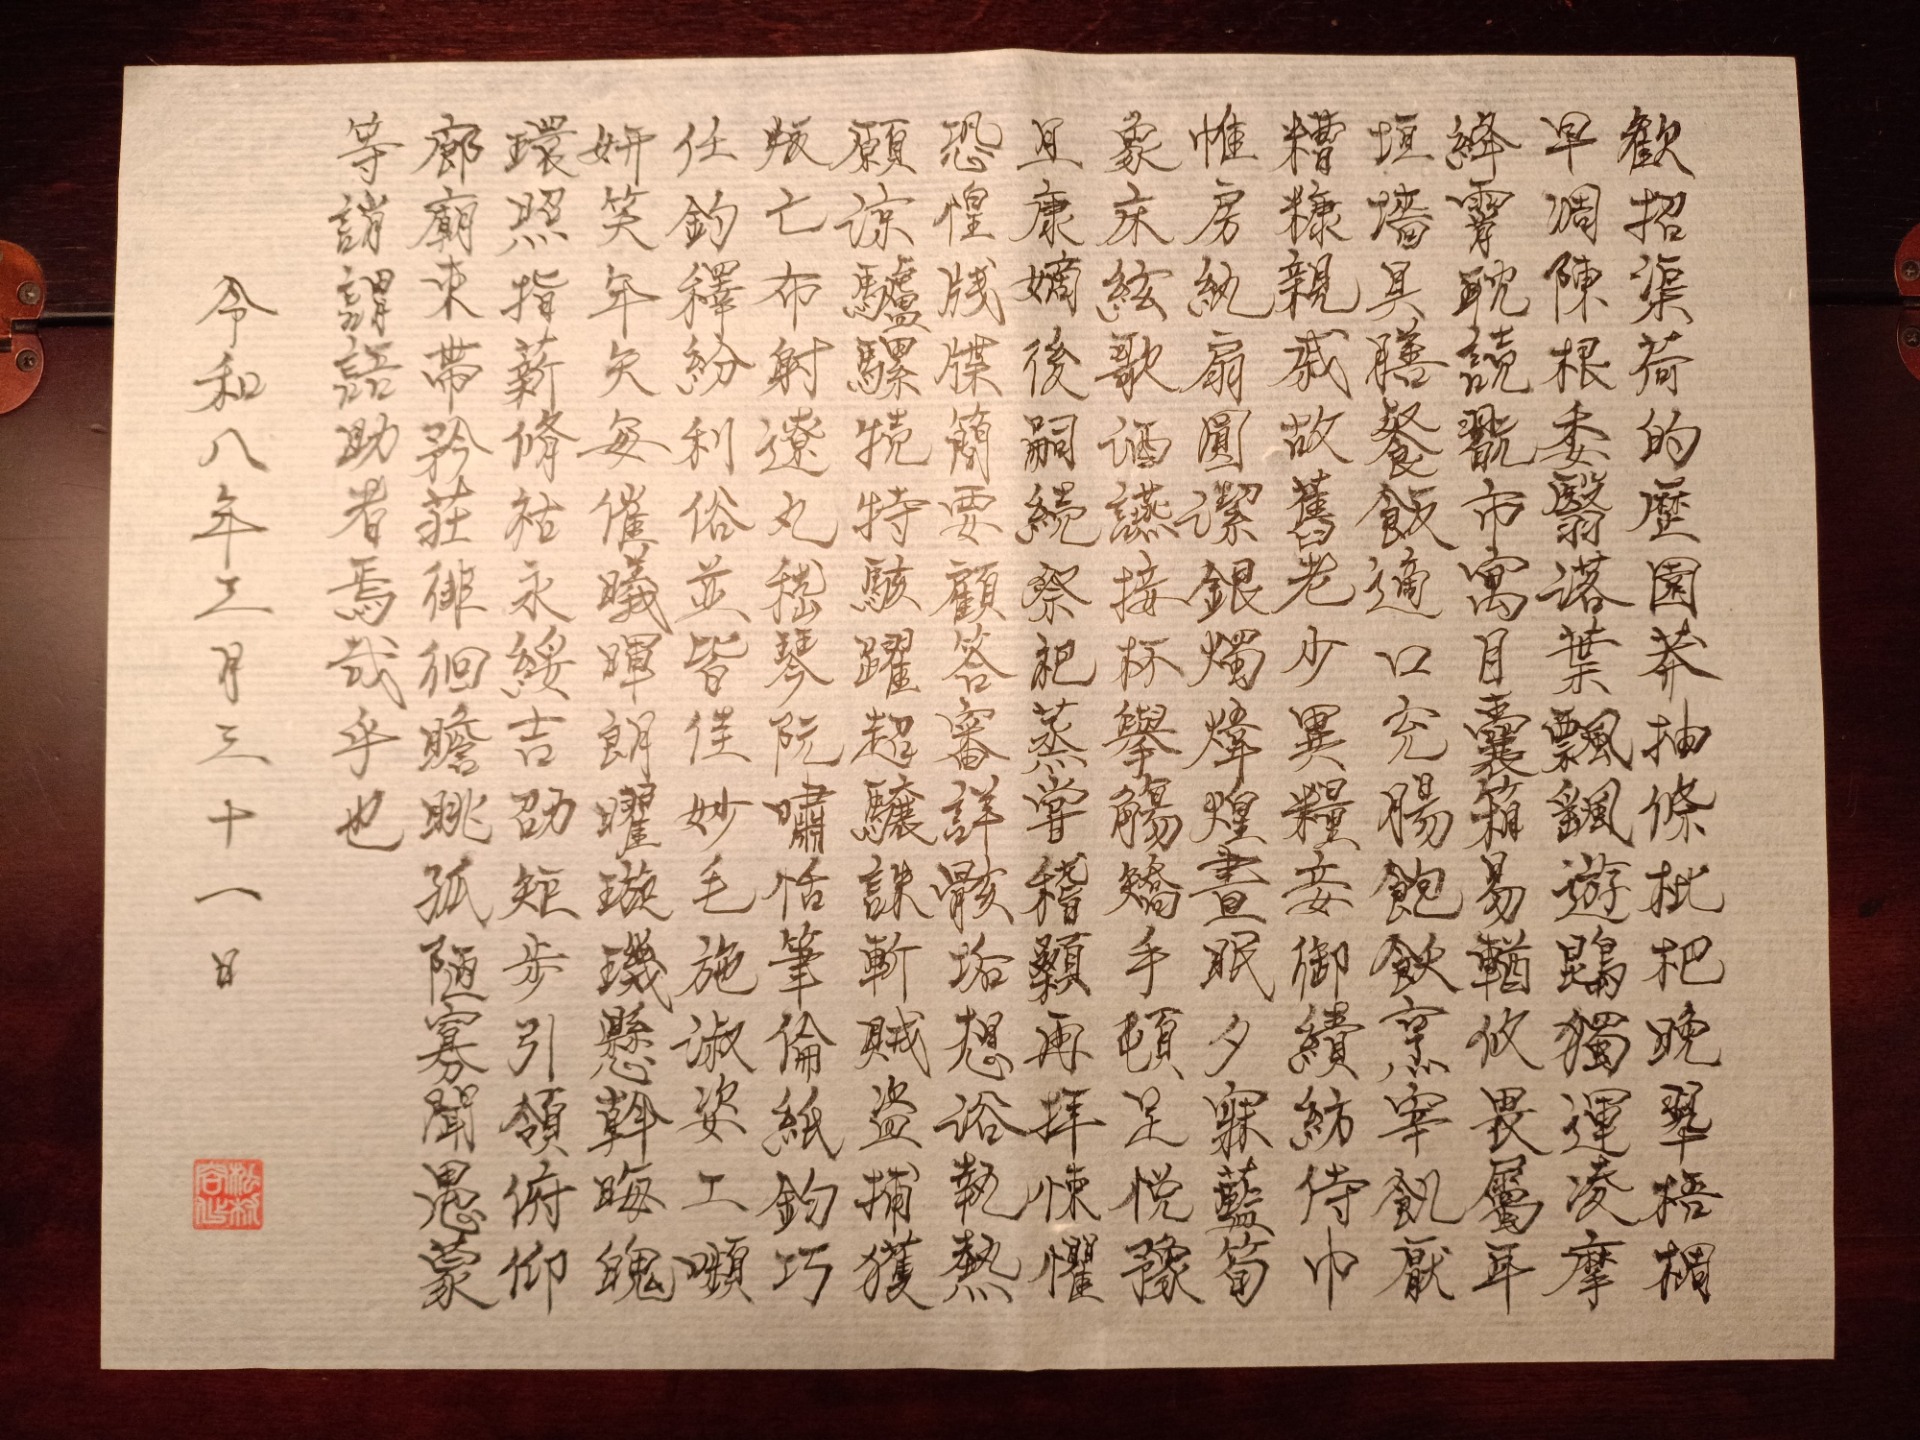 歓招渠荷的歴園莽抽條枇杷晩翠梧桐
早凋陳根委翳落葉飄颻遊鵾獨運凌摩
絳霄耽読翫市寓目囊箱易輶攸畏屬耳
垣墻具膳餐飯適口充腸飽飫烹宰飢厭
糟糠親戚故舊老少異糧妾御績紡侍巾
帷房紈扇圓潔銀燭煒煌晝眠夕寐藍筍
象床絃歌酒讌接杯擧觴矯手頓足悦豫
且康嫡後嗣続祭祀蒸嘗稽顙再拝悚懼
恐惶牋牒簡要顧答審詳骸垢想浴執熱
願涼驢騾犢特駭躍超驤誅斬賊盗捕獲
叛亡布射遼丸嵇琴阮嘯恬筆倫紙鈞巧
任釣釋紛利俗並皆佳妙毛施淑姿工嚬
妍笑年矢毎催曦暉朗曜璇璣懸斡晦魄
環照指薪脩祜永綏吉劭矩歩引領俯仰
廊廟束帯矜莊徘徊瞻眺孤陋寡聞愚蒙
等誚謂語助者焉哉乎也
令和八年三月三十一日